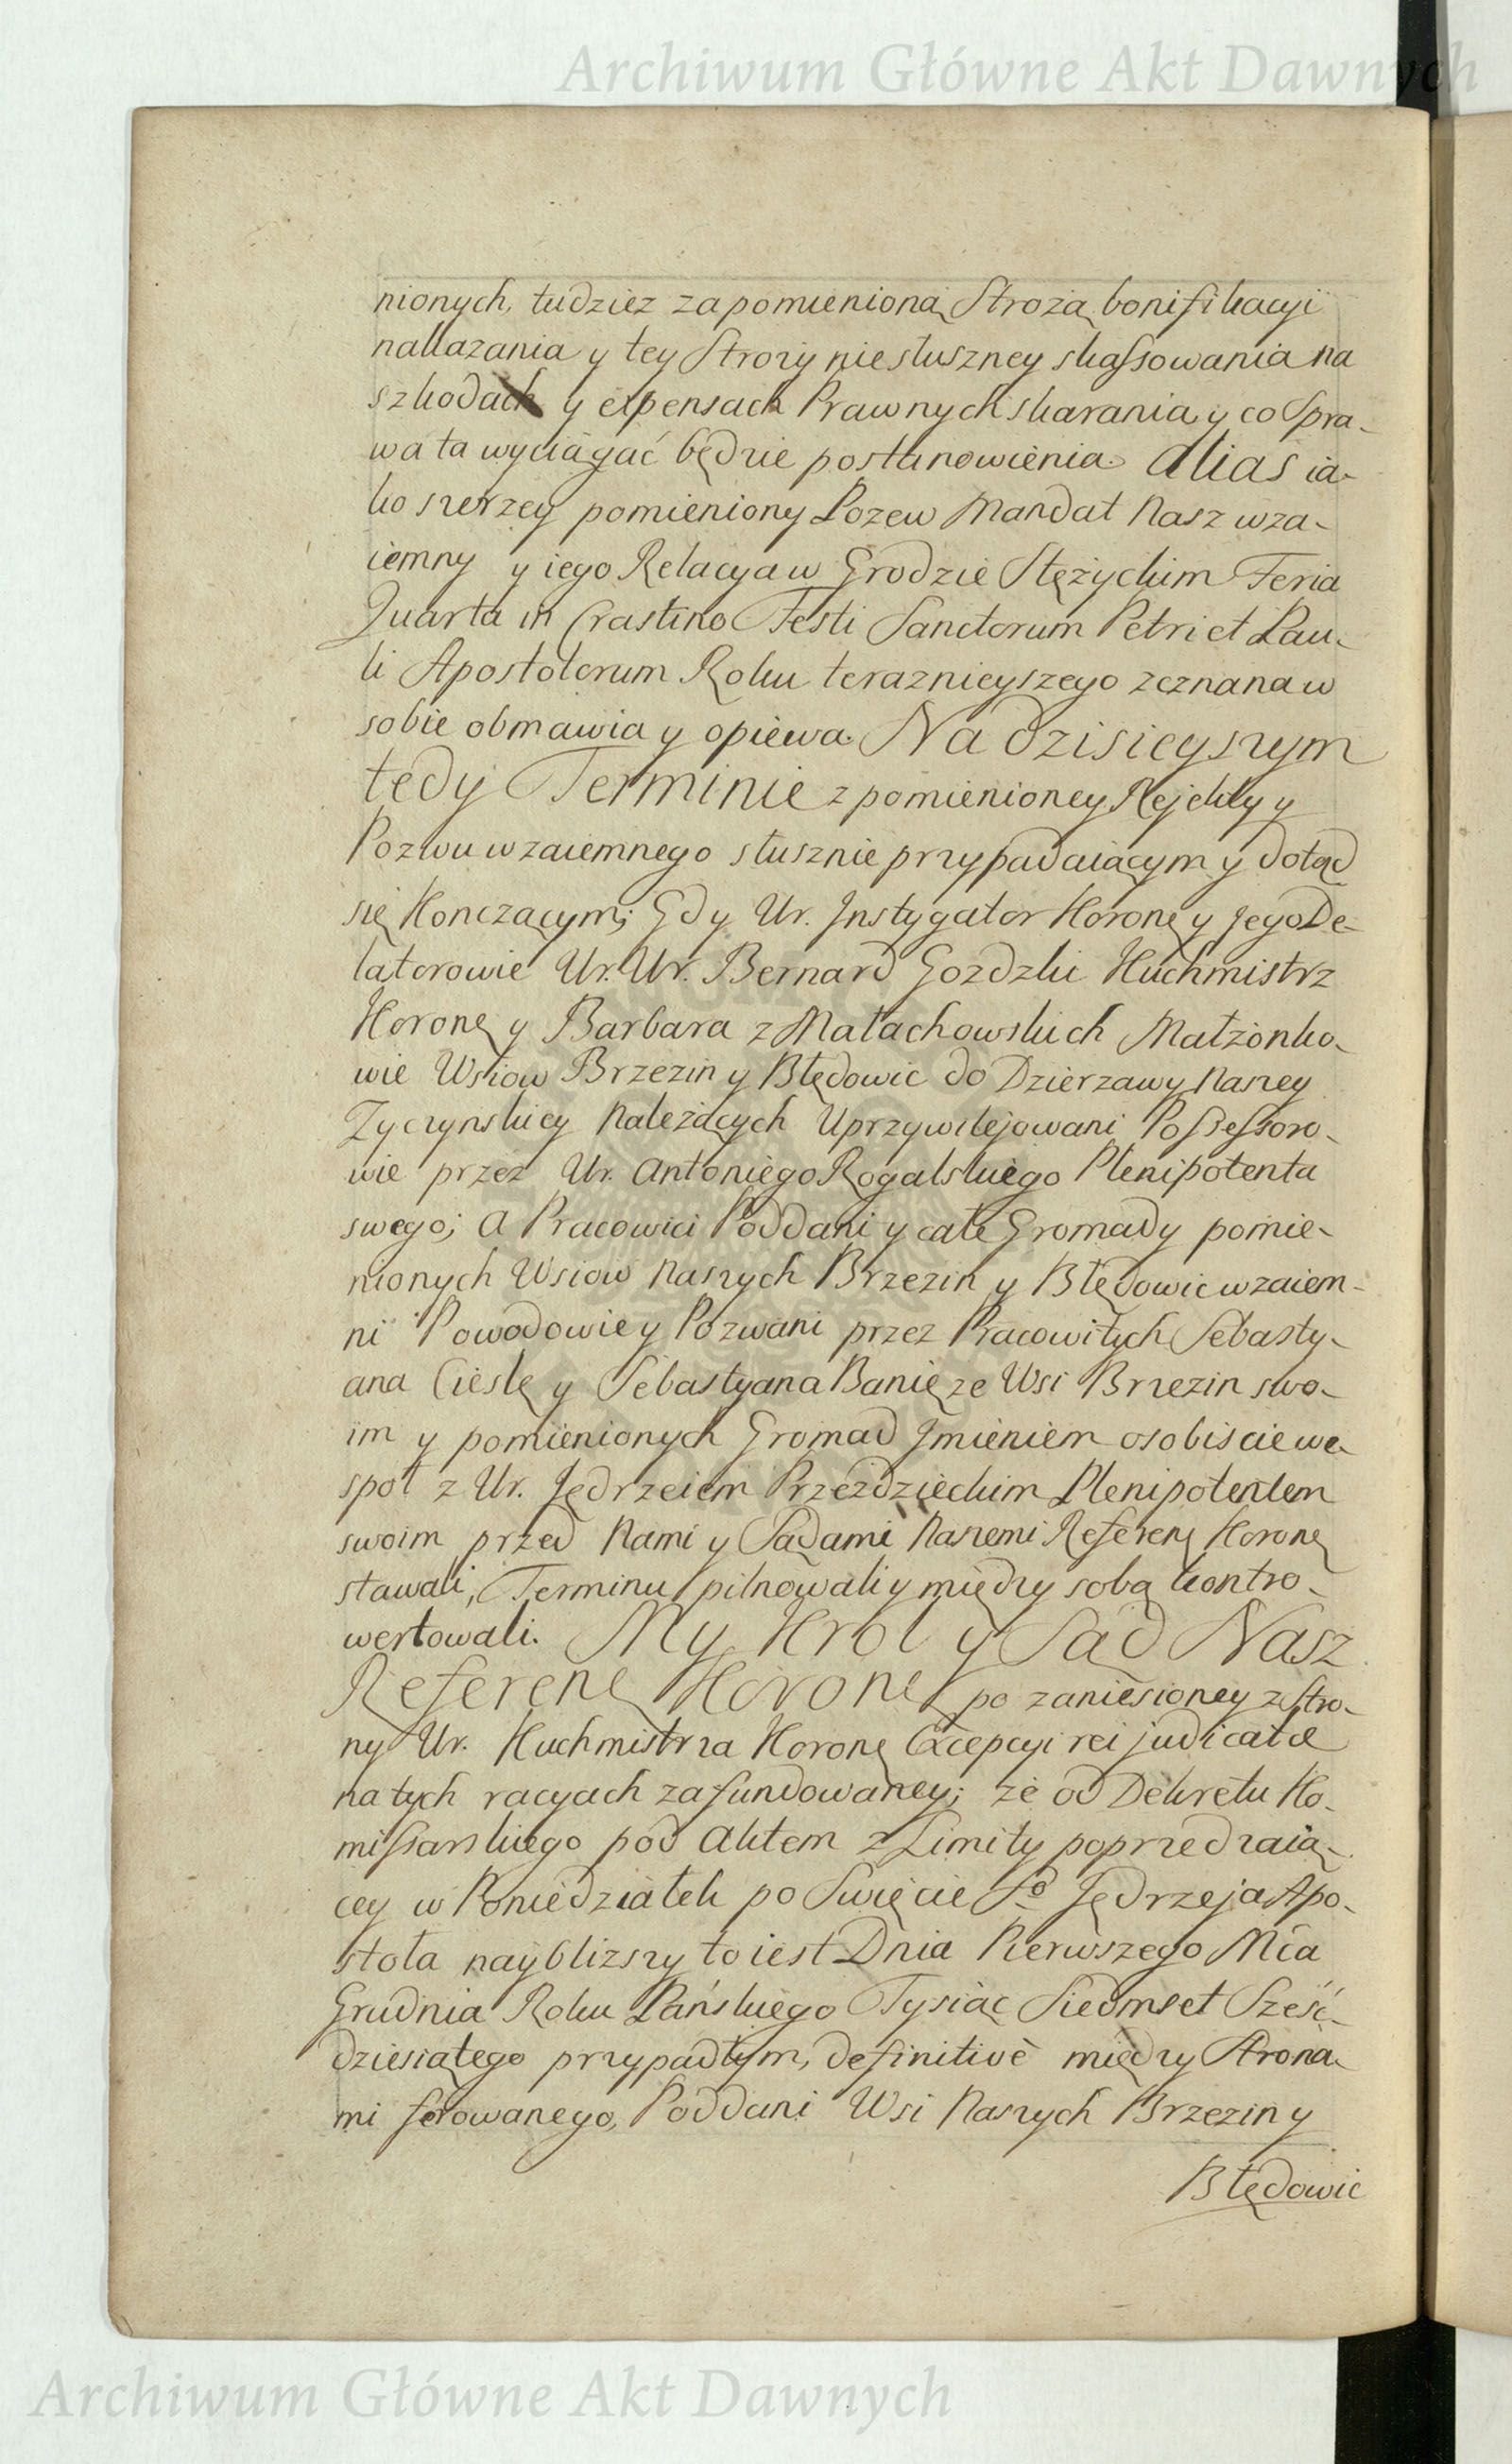 Archiwum Główne Akt Dawnych
nionych, tudziez za pomienioną Strożą bonifikacyi
nakazania y tey Stroży niesłuszney skassowania na
szkodach y expensach Prawnych skarania, y co Spra-
wa ta wyciągać będzie postanowienia. Alias ia-
ko szerzey pomieniony Pozew Mandat Nasz wza-
iemny y iego Relacya w Grodzie Stężyckim Feria
Quarta in Crastino Festi Sanctorum Petri et Pau-
li Apostolorum Roku teraznieyszego zeznana w
sobie obmawia y opiewa. Na dzisieyszym
tedy Terminie z pomienioney Rejekty y
Pozwu wzaiemnego słusznie przypadaiącym y dotąd
się Konczącym; Gdy Ur. Instygator Koronę y Jego De-
latorowie Ur. Ur. Bernard Gozdzki Kuchmistrz
Koronę y Barbara z Małachowskich Małżonko-
wie Wsiow Brzezin y Błędowic do Dzierzawy Naszey
Zyczynskiey Należących Uprzywilejowani Possessoro-
wie przez Ur. Antoniego Rogalskiego Plenipotenta
swego; A Pracowici Poddani y całe Gromady pomie-
nionych Wsiow Naszych Brzezin y Błędowic wzaiem-
ni Powodowie y Pozwani przez Pracowitych Sebasty-
ana Cieslę y Sebastyana Banię ze Wsi Brzezin swo-
im y pomienionych Gromad Jmieniem osobiscie we-
społ z Ur. Jędrzeiem Przezdzieckim Plenipotentem
swoim przed Nami y Sądami Naszemi Referenę Koronę
stawali, Terminu pilnowali y między sobą kontro-
wertowali. My Krol y Sąd Nasz
Referenę Koronę po zaniesioney ze stro-
ny Ur. Kuchmistrza Koronę Excepcyi rei judicatæ
na tych racyach zafundowaney; że od Dekretu Ko-
missarskiego pod Aktem z Limity poprzedzaią-
cey w Poniedziałek po Swięcie So Jędrzeja Apo-
stoła nayblizszy to iest Dnia Pierwszego Mca
Grudnia Roku Pańskiego Tysiąc Siedmset Sześć-
dziesiątego przypadłym, definitivè między Strona-
mi ferowanego, Poddani Wsi Naszych Brzezin y
Błędowic
Archiwum Główne Akt Dawnych